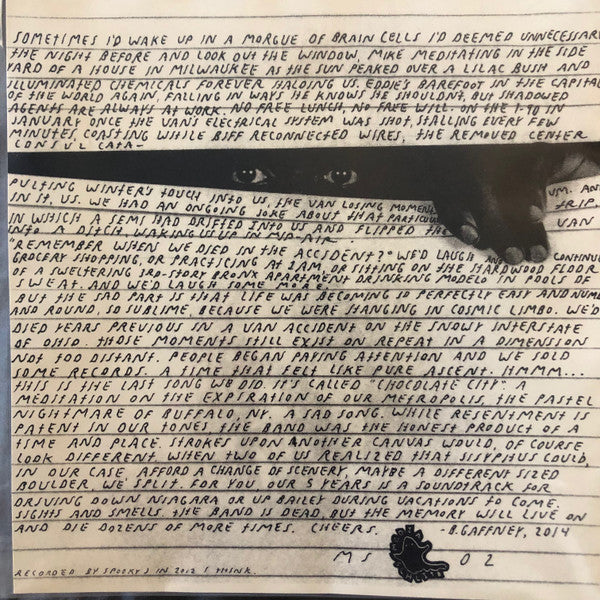 SOMETIMES I'D WAKE UP IN A MORGUE OF BRAIN CELLS I'D DEEMED UNNECESSARY
THE NIGHT BEFORE AND LOOK OUT THE WINDOW, MIKE MEDITATING IN THE SIDE
YARD OF A HOUSE IN MILWAUKEE AS THE SUN PEAKED OVER A LILAC BUSH AND
ILLUMINATED CHEMICALS FOREVER HOLDING US. EDDIE'S BAREFOOT IN THE CAPITAL
OF THE WORLD AGAIN, FALLING IN WAYS HE KNOWS HE SHOULDN'T, BUT SHADOWED
AGENTS ARE ALWAYS AT WORK. NO FREE LUNCH, NO FREE WILL. ON THE I-90 IN
JANUARY ONCE THE VAN'S ELECTRICAL SYSTEM WAS SHOT, STALLING EVERY FEW
MINUTES, COASTING WHILE BIFF RECONNECTED WIRES, THE REMOVED CENTER
CONSUL CATA-
PULTING WINTER'S TOUCH INTO US, THE VAN LOSING MOMENTUM. AND
IN IT, US. WE HAD AN ONGOING JOKE ABOUT THAT PARTICULAR TRIP,
IN WHICH A SEMI HAD DRIFTED INTO US AND FLIPPED THE VAN
INTO A DITCH, WAKING US UP IN MID-AIR.
"REMEMBER WHEN WE DIED IN THE ACCIDENT?" WE'D LAUGH AND CONTINUE
GROCERY SHOPPING, OR PRACTICING AT 2AM, OR SITTING ON THE HARDWOOD FLOOR
OF A SWELTERING 3RD-STORY BRONX APARTMENT DRINKING MODELO IN POOLS OF
SWEAT. AND WE'D LAUGH SOME MORE.
BUT THE SAD PART IS THAT LIFE WAS BECOMING SO PERFECTLY EASY AND NUMB
AND ROUND, SO SUBLIME, BECAUSE WE WERE HANGING IN COSMIC LIMBO. WE'D
DIED YEARS PREVIOUS IN A VAN ACCIDENT ON THE SNOWY INTERSTATE
OF OHIO. THOSE MOMENTS STILL EXIST ON REPEAT IN A DIMENSION
NOT TOO DISTANT. PEOPLE BEGAN PAYING ATTENTION AND WE SOLD
SOME RECORDS. A TIME THAT FELT LIKE PURE ASCENT. HMMM...
THIS IS THE LAST SONG WE DID. IT'S CALLED "CHOCOLATE CITY". A
MEDITATION ON THE EXPIRATION OF OUR METROPOLIS, THE PASTEL
NIGHTMARE OF BUFFALO, NY. A SAD SONG. WHILE RESENTMENT IS
PATENT IN OUR TONES, THE BAND WAS THE HONEST PRODUCT OF A
TIME AND PLACE. STROKES UPON ANOTHER CANVAS WOULD, OF COURSE,
LOOK DIFFERENT. WHEN TWO OF US REALIZED THAT SISYPHUS COULD,
IN OUR CASE, AFFORD A CHANGE OF SCENERY, MAYBE A DIFFERENT SIZED
BOULDER, WE SPLIT. FOR YOU, OUR 5 YEARS IS A SOUNDTRACK FOR
DRIVING DOWN NIAGARA OR UP BAILEY DURING VACATIONS TO COME.
SIGHTS AND SMELLS. THE BAND IS DEAD, BUT THE MEMORY WILL LIVE ON
AND DIE DOZENS OF MORE TIMES. CHEERS. -B.GAFFNEY, 2014
MS 02
RECORDED BY SPOOKY J IN 2012 I THINK.